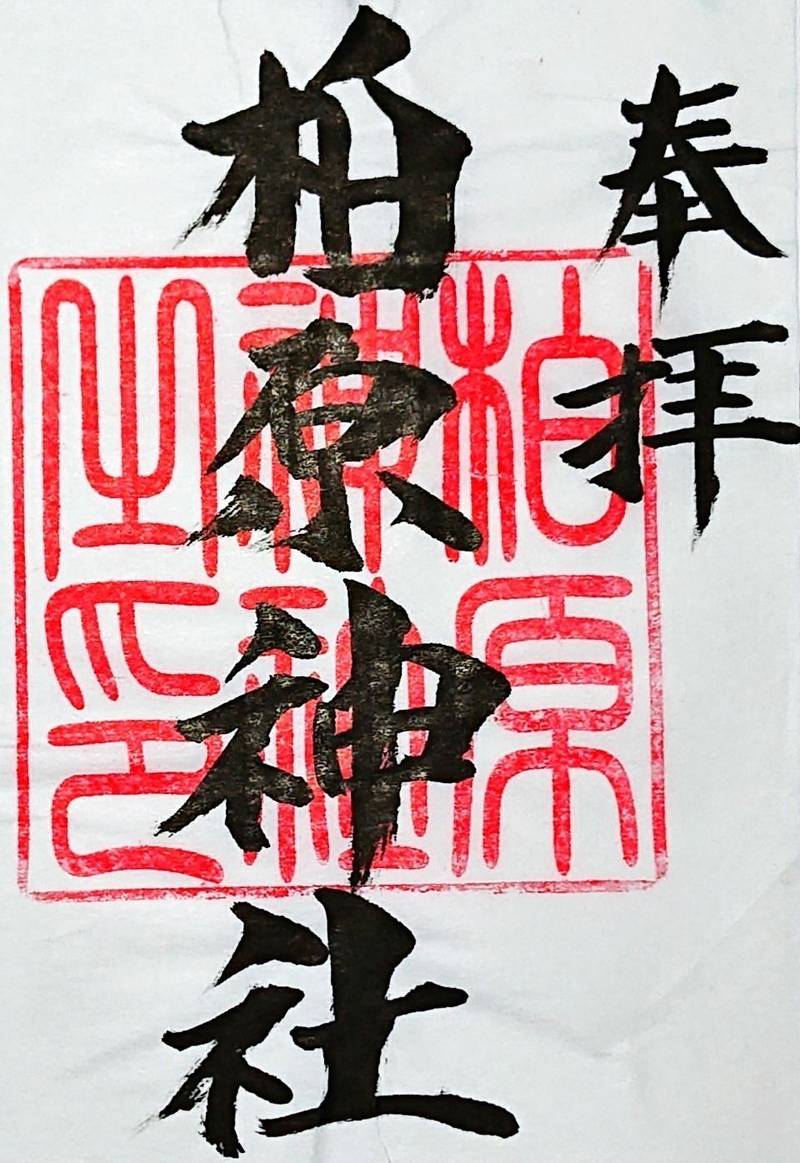 奉拝
柏原神社
柏原
神社
之印